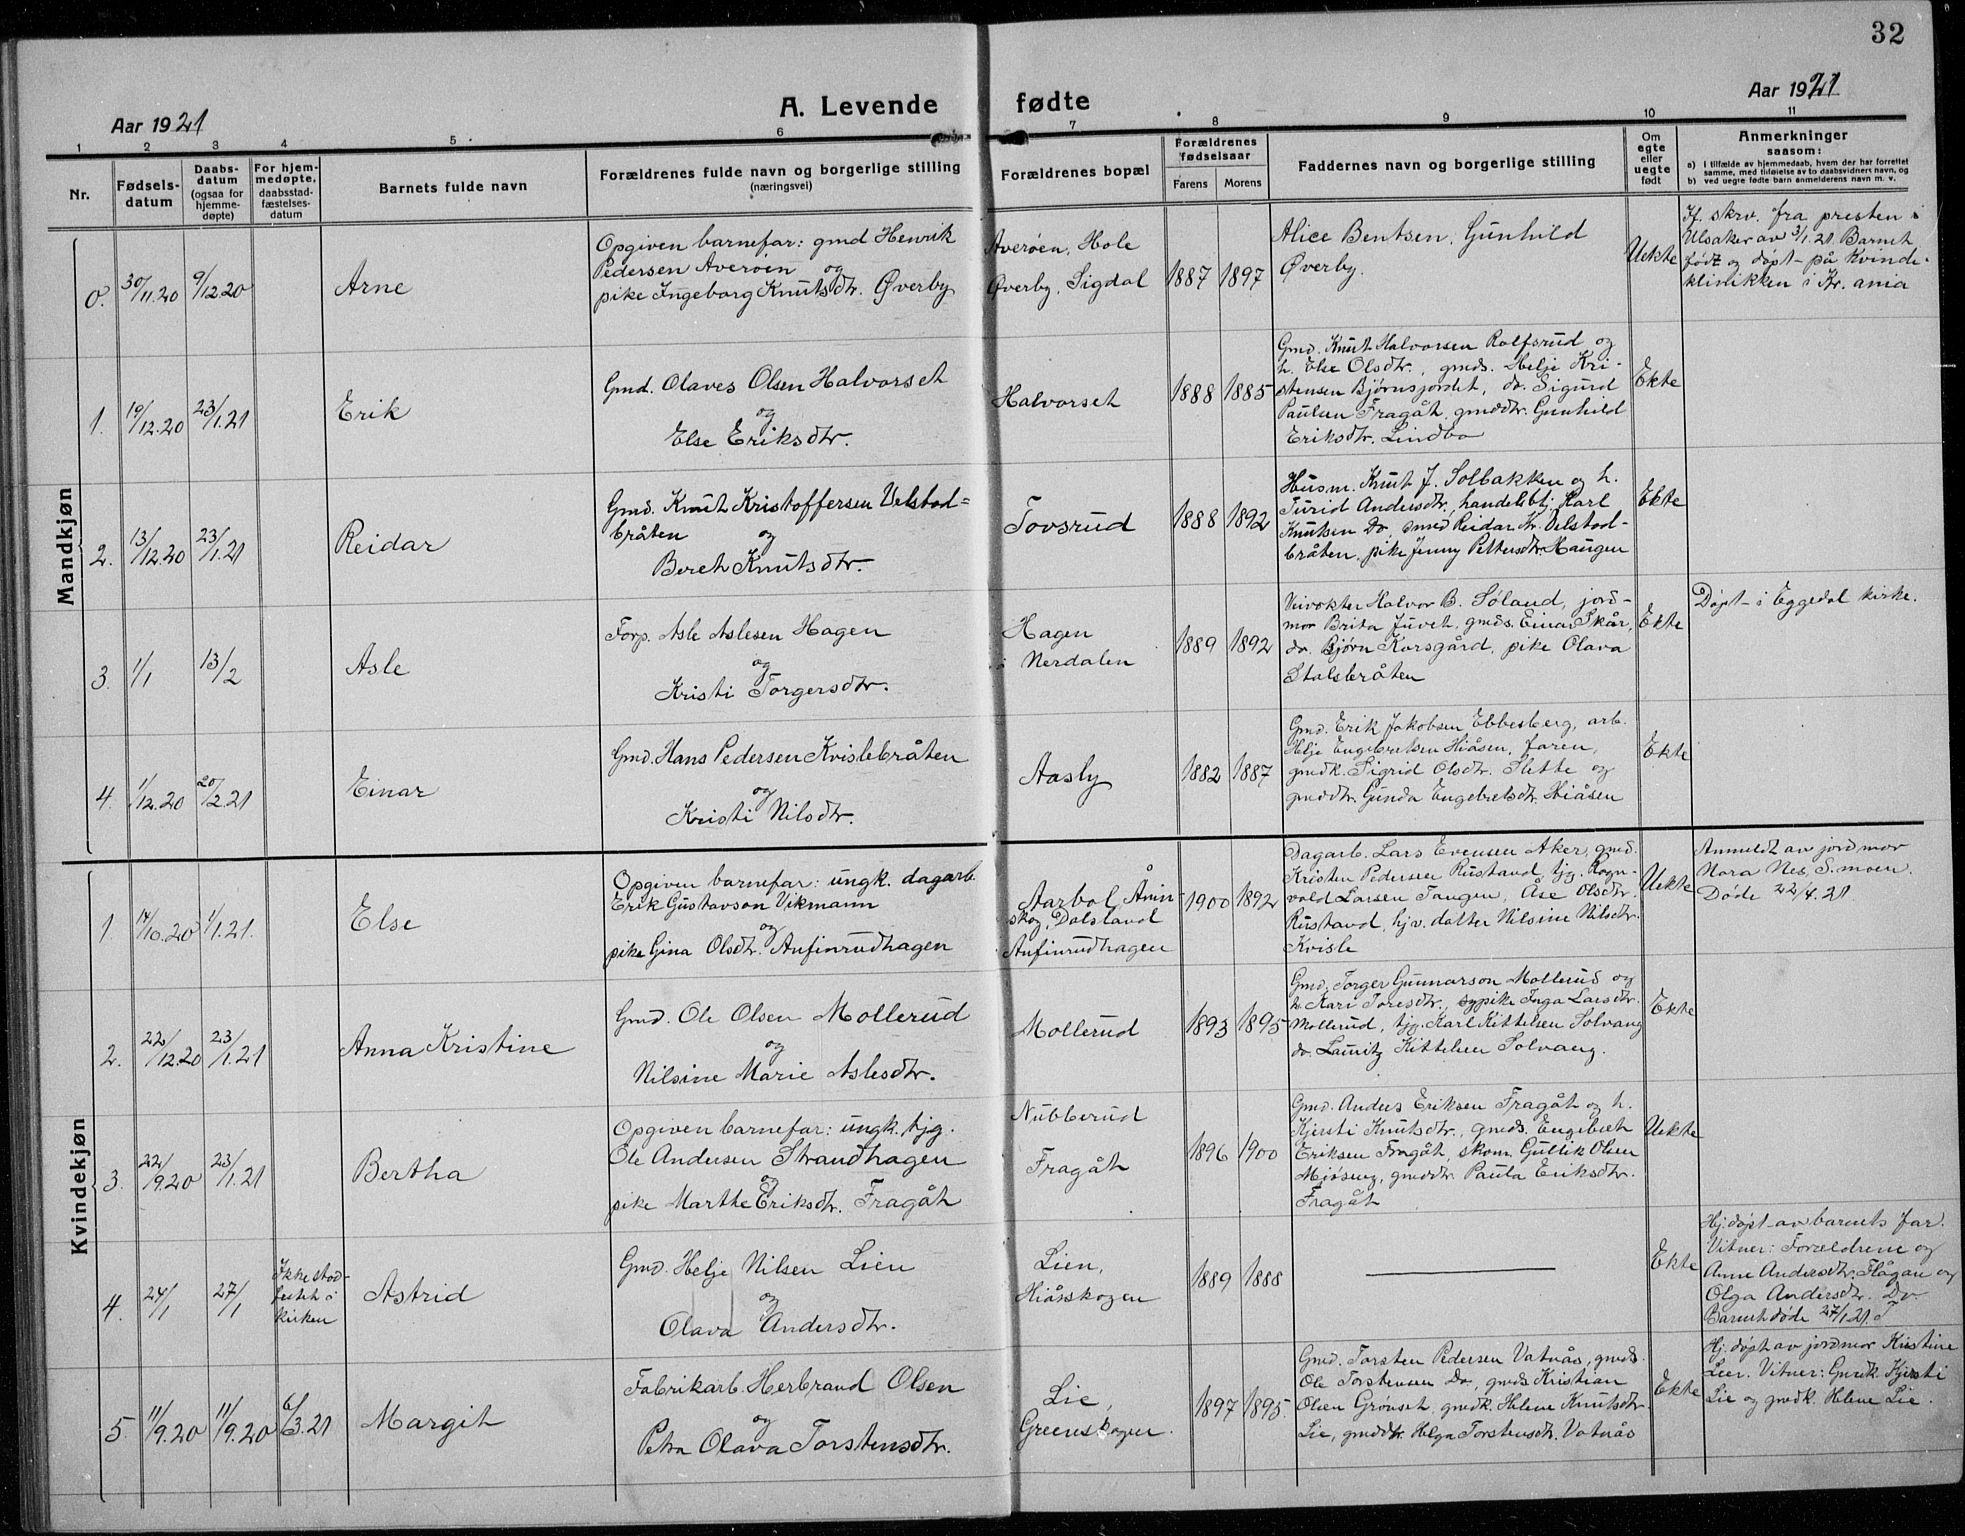 32
Aar 1921
A. Levende fødte
Aar 1921
1 2 3 4 5 6 7 8 9 10 11
Nr.
Fødsels-
datum
Daabs-
datum
(ogsaa for
hjemme-
døpte)
For hjem-
medøpte,
daabsstad-
fæstelses-
datum
Barnets fulde navn
Forældrenes fulde navn og borgerlige stilling
(næringsvei)
Forældrenes bopæl
Forældrenes
fødselsaar
Farens Morens
Faddernes navn og borgerlige stilling
Om
egte
eller
uegte
født
Anmerkninger
saasom:
a) I tilfælde av hjemmedaab, hvem der har forrettet
samme, med tilføielse av to daabsvidners navn, og
b) ved uegte fødte barn anmelderens navn m. v.
Mandkjøn
0. 30/11.20 9/12.20
Arne
Opgiven barnefar: gmd Henrik
Pedersen Averøen og
pike Ingeborg Knutsdtr. Øverby
Averøen, Hole
Øverby, Sigdal
1887 1897
Alice Bentsen, Gunhild
Øverby.
Uekte
If. skrv. fra presten i
Ulsaker av 3/1.21. Barnet
født og døpt på Kvinde-
klinikken i Kr.ania
1. 19/12.20 23/1.21
Erik
Gmd. Olaves Olsen Halvorset
og
Else Eriksdtr.
Halvorset
1888 1885
Gmd. Knut Halvorsen Rolfsrud og
h. Else Olsdtr., gmds. Helje Kri-
stensen Bjørnsjordet, do. Sigurd
Paulsen Fragåt, gmddtr. Gunhild
Eriksdtr. Lindbo
Ekte
2. 13/12.20 23/1.21
Reidar
Gmd. Knut Kristoffersen Velstad=
bråten og
Beret Knutsdtr.
Tovsrud
1888 1892
Husm. Knut J. Solbakken og h.
Turid Andersdtr., handelsbtj. Karl
Knutsen Do, smed Reidar Kr. Velstad-
bråten, pike Jenny Pettersdtr. Haugen
Ekte
3. 1/1 13/2
Asle
Forp. Asle Aslesen Hagen
og
Kristi Torgersdtr.
Hagen
i Nerdalen
1889 1892
Veivokter Halvor B. Søland, jord-
mor Brita Juvet, gmds. Einar Skår,
do. Bjørn Korsgård, pike Olava
Stalsbråten
Ekte
Døpt i Eggedal kirke.
4. 1/12.20 20/2.21
Einar
Gmd. Hans Pedersen Kvislebråten
og
Kristi Nilsdtr.
Aasly
1882 1887
Gmd. Erik Jakobsen Ebbesberg, arb.
Helje Engebretsen Hiåsen, faren,
gmdk. Sigrid Olsdtr. Slette og
gmddtr. Gunda Engebretsdtr. Hiåsen
Ekte
Kvindekjøn
1 14/10.20 1/1.21.
Else
Opgiven barnefar: ungk. dagarb.
Erik Gustavson Vikmann
og
pike Gina Olsdtr. Anfinrudhagen
Aarbol, Åmin-
skog, Dalsland
Anfinrudhagen
1900 1892
Dagarb. Lars Evensen Aker, gmd.
Kristen Pedersen Rustand, tjg. Rogn-
vold Larsen Tangen, Åse Olsdtr.
Rustand, hjv. datter Nilsine Nilsdtr.
Kvisle
Uekte
Anmeldt av jordmor
Nora Nes, S.moen.
Døde 22/4.21.
2. 22/12.20 23/1.21
Anna Kristine
Gmd. Ole Olsen Mollerud
og
Nilsine Marie Aslesdtr.
Mollerud
1893 1895
Gmd. Torger Gunnarson Mollerud og
h. Kari Toresdtr., sypike Inga Larsdtr.
Mollerud, tjg. Karl Kittelsen Solvang
do. Lauritz Kittelsen Solvang.
Ekte
3. 22/9.20 23/1.21
Bertha
Opgiven barnefar: ungk. tjg.
Ole Andersen Strandhagen
og
pike Marthe Eriksdtr. Fragåt
Nubberud
Fragåt
1896 1900
Gmd. Anders Eriksen Fragåt og h.
Kjersti Knutsdtr., gmds. Engebret
Eriksen Fragåt, skom. Gullik Olsen
Mjøseng, gmddtr. Paula Eriksdtr.
Fragåt
Uekte
4. 24/1 27/1
Ikke stad-
festet i
kirken
Astrid
Gmd. Helje Nilsen Lien
og
Olava Andersdtr.
Lien,
Hiåsskogen
1889 1888
Ekte
Hj.døpt av barnets far.
Vitner: Forældrene og
Anne Andersdtr. Flågan og
Olga Andersdtr. Do.
Barnet døde 27/1.21.
5. 11/9.20 11/9.20 6/3.21
Margit
Fabrikarb. Herbrand Olsen
og
Petra Olava Torstensdtr.
Lie,
Greenskogen.
1897 1895.
Gmd. Torsten Pedersen Vatnås, gmds.
Ole Torstensen Do, gmds Kristian
Olsen Gronset, gmdk. Helene Knutsdtr.
Lie, gmddtr. Helga Torstensdtr. Vatnås
Ekte
Hj.døpt av jordmor Kristine
Leer. Vitner: Gmdk. Kjersti
Lie og gmdk. Helene Lie.